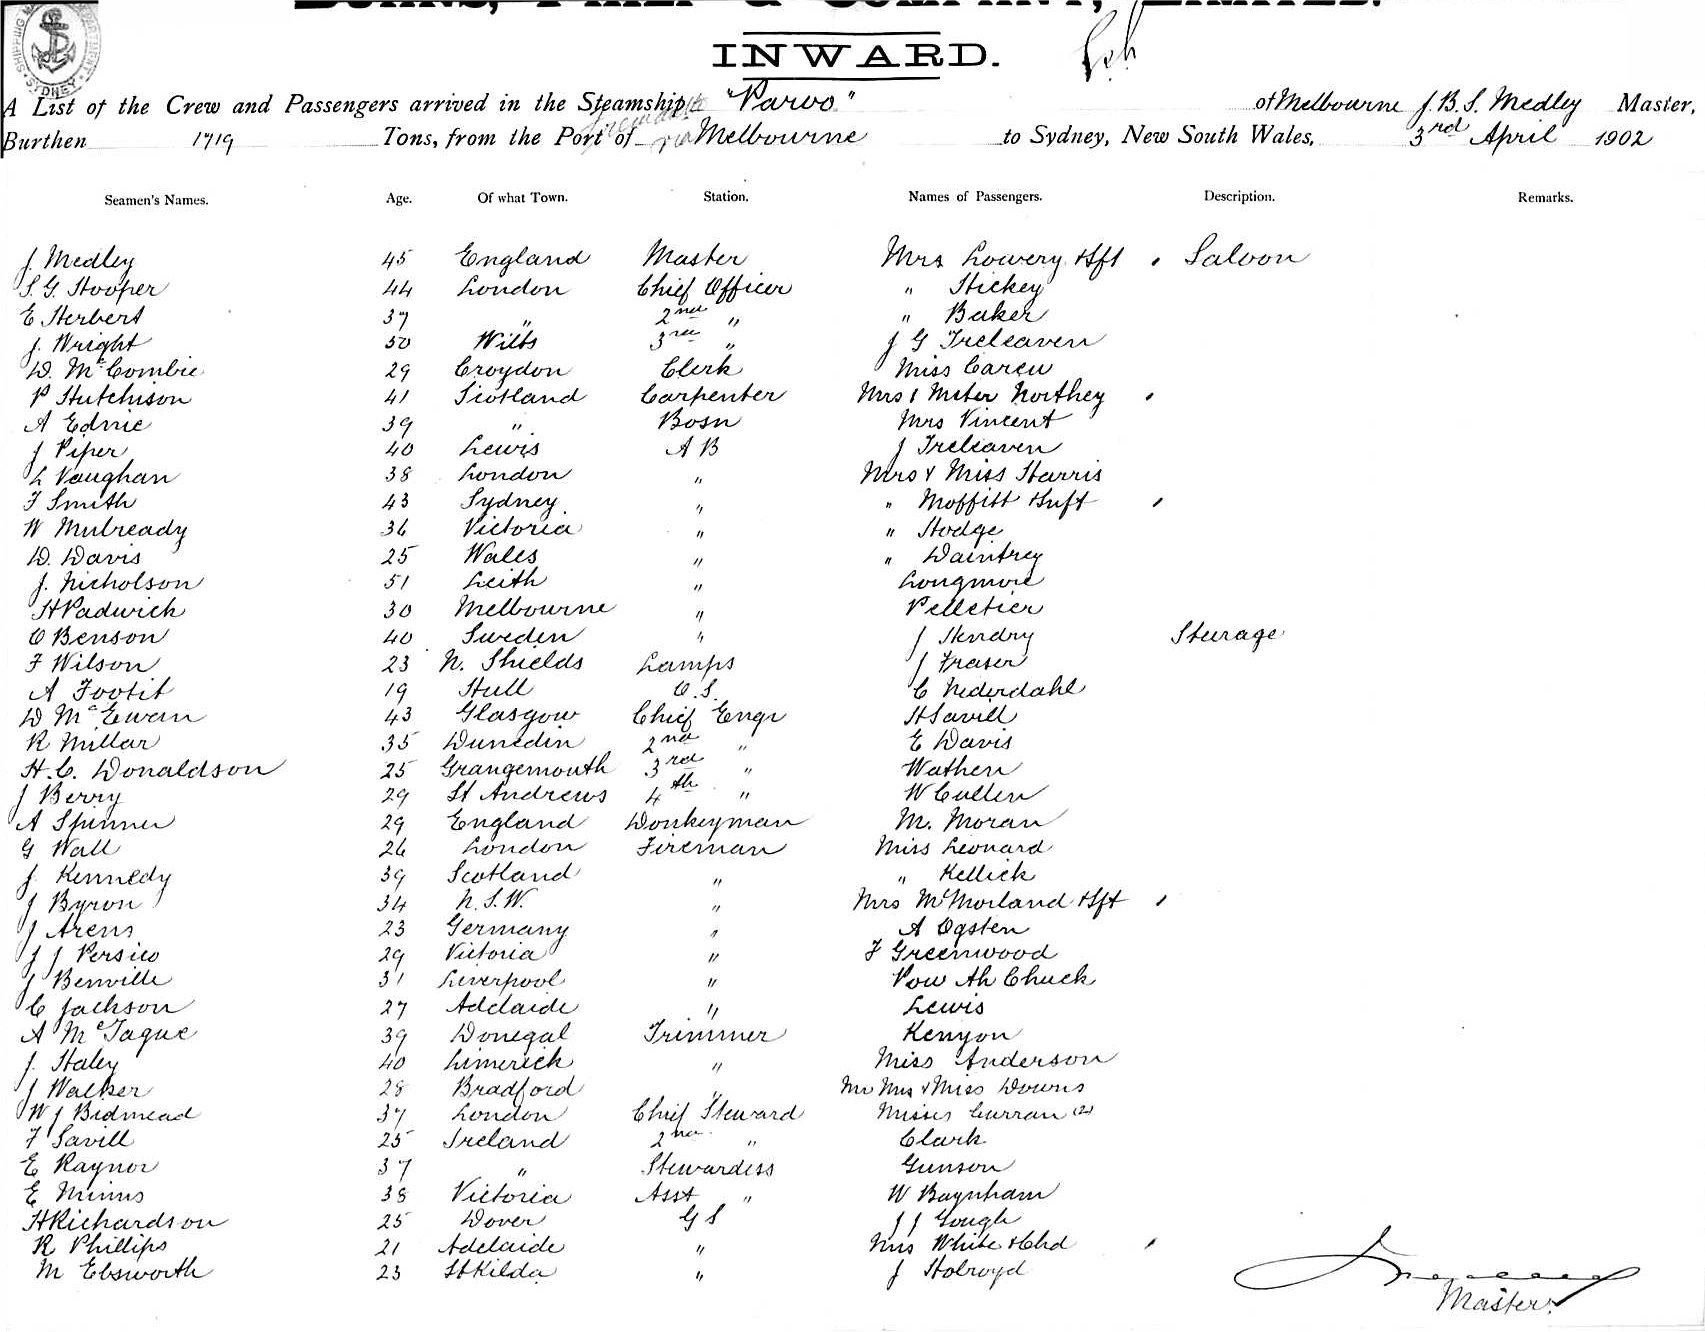 BURNS, PHILP & COMPANY, LIMITED.
INWARD.
SYDNEY
A List of the Crew and Passengers arrived in the Steamship "Paroo" of Melbourne J. B. S. Medley Master,
Burthen 1719 Tons, from the Port of via Melbourne to Sydney, New South Wales, 3rd April 1902
Seamen's Names. Age. Of what Town. Station. Names of Passengers. Description. Remarks.
J. Medley 45 England Master Mrs Lowery & Sft Saloon
S. G. Hooper 44 London Chief Officer " Hickey
E Herbert 37 " 2nd " " Baker
J. Wright 50 Wilts 3rd " J G Treleaven
D. McCombie 29 Croydon Clerk Miss Carew
P Hutchison 41 Scotland Carpenter Mrs & Mster Northey
A Ednie 39 " Bosn Mrs Vincent
J Piper 40 Lewis A B J Treleaven
L Vaughan 38 London " Mrs & Miss Harris
F Smith 43 Sydney " " Moffitt & Inft
W Mulready 36 Victoria " " Hodge
D. Davis 25 Wales " " Daintrey
J. Nicholson 51 Leith " Longmore
H Padwick 30 Melbourne " Pelletier
O Benson 40 Sweden " J Hendry Steerage
F Wilson 23 N. Shields Lamps J Fraser
A Footit 19 Hull O.S. C Nederdahl
D McEwan 43 Glasgow Chief Engr H Savill
R Millar 35 Dunedin 2nd " E Davis
H. C. Donaldson 25 Grangemouth 3rd " Wathen
J Berry 29 St Andrews 4th " W Cullen
A Spinner 29 England Donkeyman M. Moran
G Wall 26 London Fireman Miss Leonard
J. Kennedy 39 Scotland " " Kellick
J Byron 34 N.S.W. " Mrs McMorland & Sft
J Arens 23 Germany " A Ogsten
J J Persico 29 Victoria " F Greenwood
J Benville 31 Liverpool " Pow Ah Chuck
C Jackson 27 Adelaide " Lewis
A McTague 39 Donegal Trimmer Kenyon
J. Haley 40 Limerick " Miss Anderson
J Walker 28 Bradford " Mr Mrs & Miss Downs
W J Bidmead 37 London Chief Steward Misses Curran (2)
F Savill 25 Ireland 2nd " Clark
E Raynor 37 " Stewardess Gunson
E Minns 38 Victoria Asst " W Baynham
H Richardson 25 Dover G S J J Gough
R Phillips 21 Adelaide " Mrs White & Chd
M Ebsworth 23 St Kilda " J Holroyd
Master.